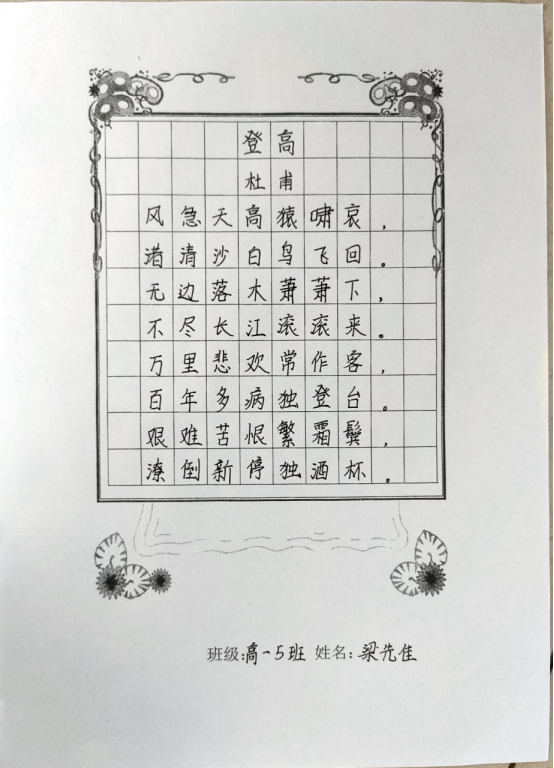 登高
杜甫
风急天高猿啸哀，
渚清沙白鸟飞回。
无边落木萧萧下，
不尽长江滚滚来。
万里悲欢常作客，
百年多病独登台。
艰难苦恨繁霜鬓，
潦倒新停独酒杯。
班级:高一5班 姓名:梁先佳